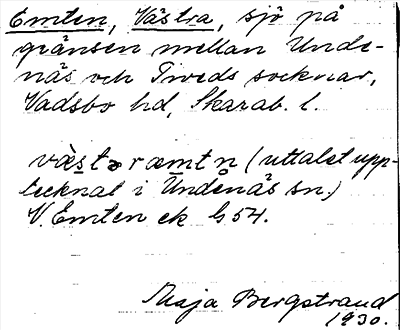 Emten, Västra, sjö på
gränsen mellan Unde-
näs och Tiveds socknar,
Vadsbo hd, Skarab. l.
væstəræmtn (uttalet upp-
tecknat i Undenäs sn.)
V. Emten ek G 54.
Maja Bergstrand
1930.